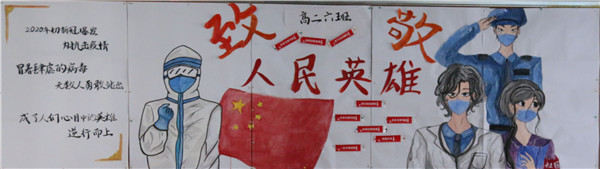 2020年初新冠爆发
为抗击疫情
冒着肆虐的病毒
无数人勇敢站出
成了人们心目中的英雄
逆行而上
致敬
高二六班
人民英雄